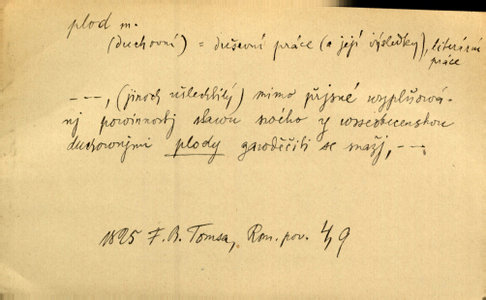 plod m.
(duchovní) = duševní práce (a její výsledky), literární
práce
– – –, (jinoch ušlechtilý) mimo přjsné wyplňowá-
nj powinnostj stawu swého y wsseobecenskou
duchownými plody zawděčiti se snažj, – –.
1825 F. B. Tomsa, Rom. pov. 4, 9